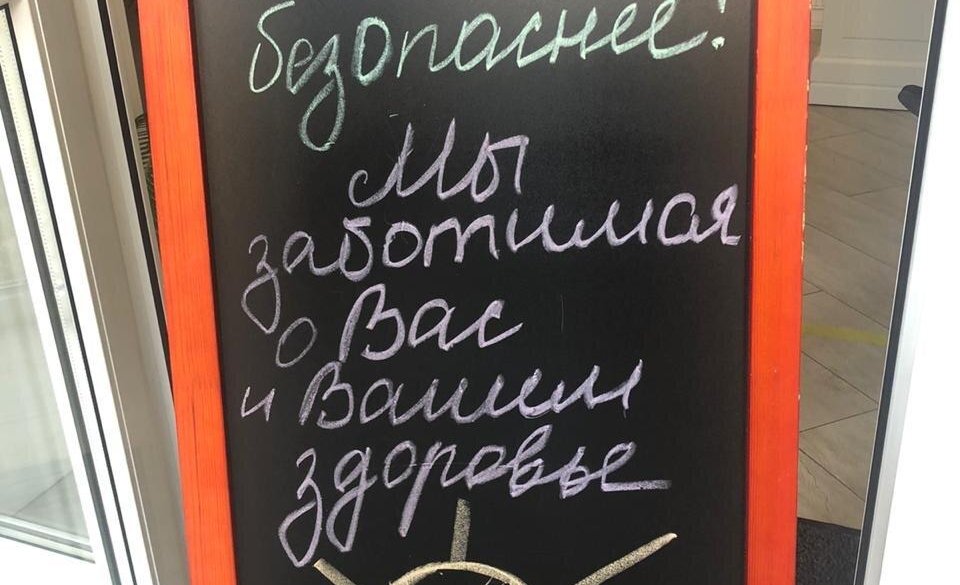 безопаснее!
Мы
заботимся
о Вас
и Вашем
здоровье